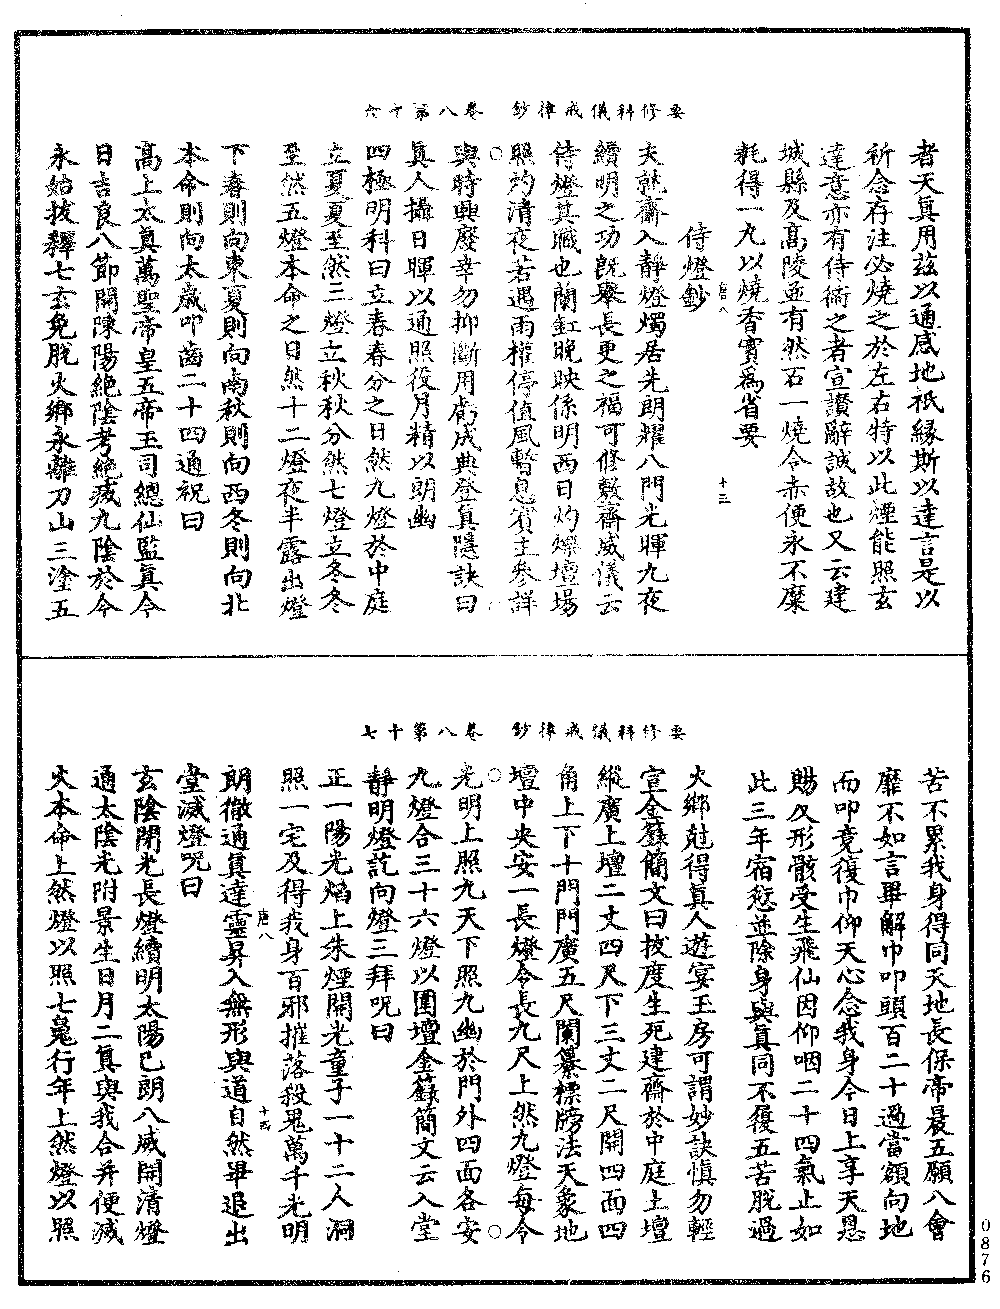 要修科儀戒律鈔 卷八第十六
者天真用茲以通感地祇緣斯以達言是以
祈念存注必燒之於左右特以此煙能照玄
達意亦有侍衛之者宣讚辭誠故也又云建
城縣及高陵並有然石一燒令赤便永不糜
耗得一丸以燒香實為省要
唐八 十三
侍燈鈔
夫就齋入靜燈燭居先朗耀八門光暉九夜
續明之功既舉長更之福可修敷齋威儀云
侍燈其職也蘭釭晚映係明西日灼爍壇場
照灼清夜若遇雨權停值風暫息賓主參詳
與時興廢幸勿抑斷用虧成典登真隱訣曰
真人攝日暉以通照役月精以朗幽
四極明科曰立春春分之日然九燈於中庭
立夏夏至然三燈立秋秋分然七燈立冬冬
至然五燈本命之日然十二燈夜半露出燈
下春則向東夏則向南秋則向西冬則向北
本命則向太歲叩齒二十四通祝曰
高上太真萬聖帝皇五帝玉司總仙監真今
日吉良八節開陳陽絕陰考絕滅九陰於今
永始拔釋七玄免脫火鄉永離刀山三塗五
要修科儀戒律鈔 卷八第十七
苦不累我身得同天地長保帝晨五願八會
靡不如言畢解巾叩頭百二十過當額向地
而叩竟復巾仰天心念我身今日上享天恩
賜及形骸受生飛仙因仰咽二十四氣止如
此三年宿愆並除身與真同不復五苦脫過
火鄉尅得真人遊宴玉房可謂妙訣慎勿輕
宣金籙簡文曰拔度生死建齋於中庭土壇
縱廣上壇二丈四尺下三丈二尺開四面四
角上下十門門廣五尺闌纂標牓法天象地
壇中央安一長燈令長九尺上然九燈每令
光明上照九天下照九幽於門外四面各安
九燈合三十六燈以圍壇金籙簡文云入堂
靜明燈訖向燈三拜呪曰
正一陽光焰上朱煙開光童子一十二人洞
照一宅及得我身百邪摧落殺鬼萬千光明
唐八 十四
朗徹通真達靈昇入無形與道自然畢退出
堂滅燈呪曰
玄陰閉光長燈續明太陽已朗八威開清燈
通太陰光附景生日月二真與我合并便滅
火本命上然燈以照七䰟行年上然燈以照
0876